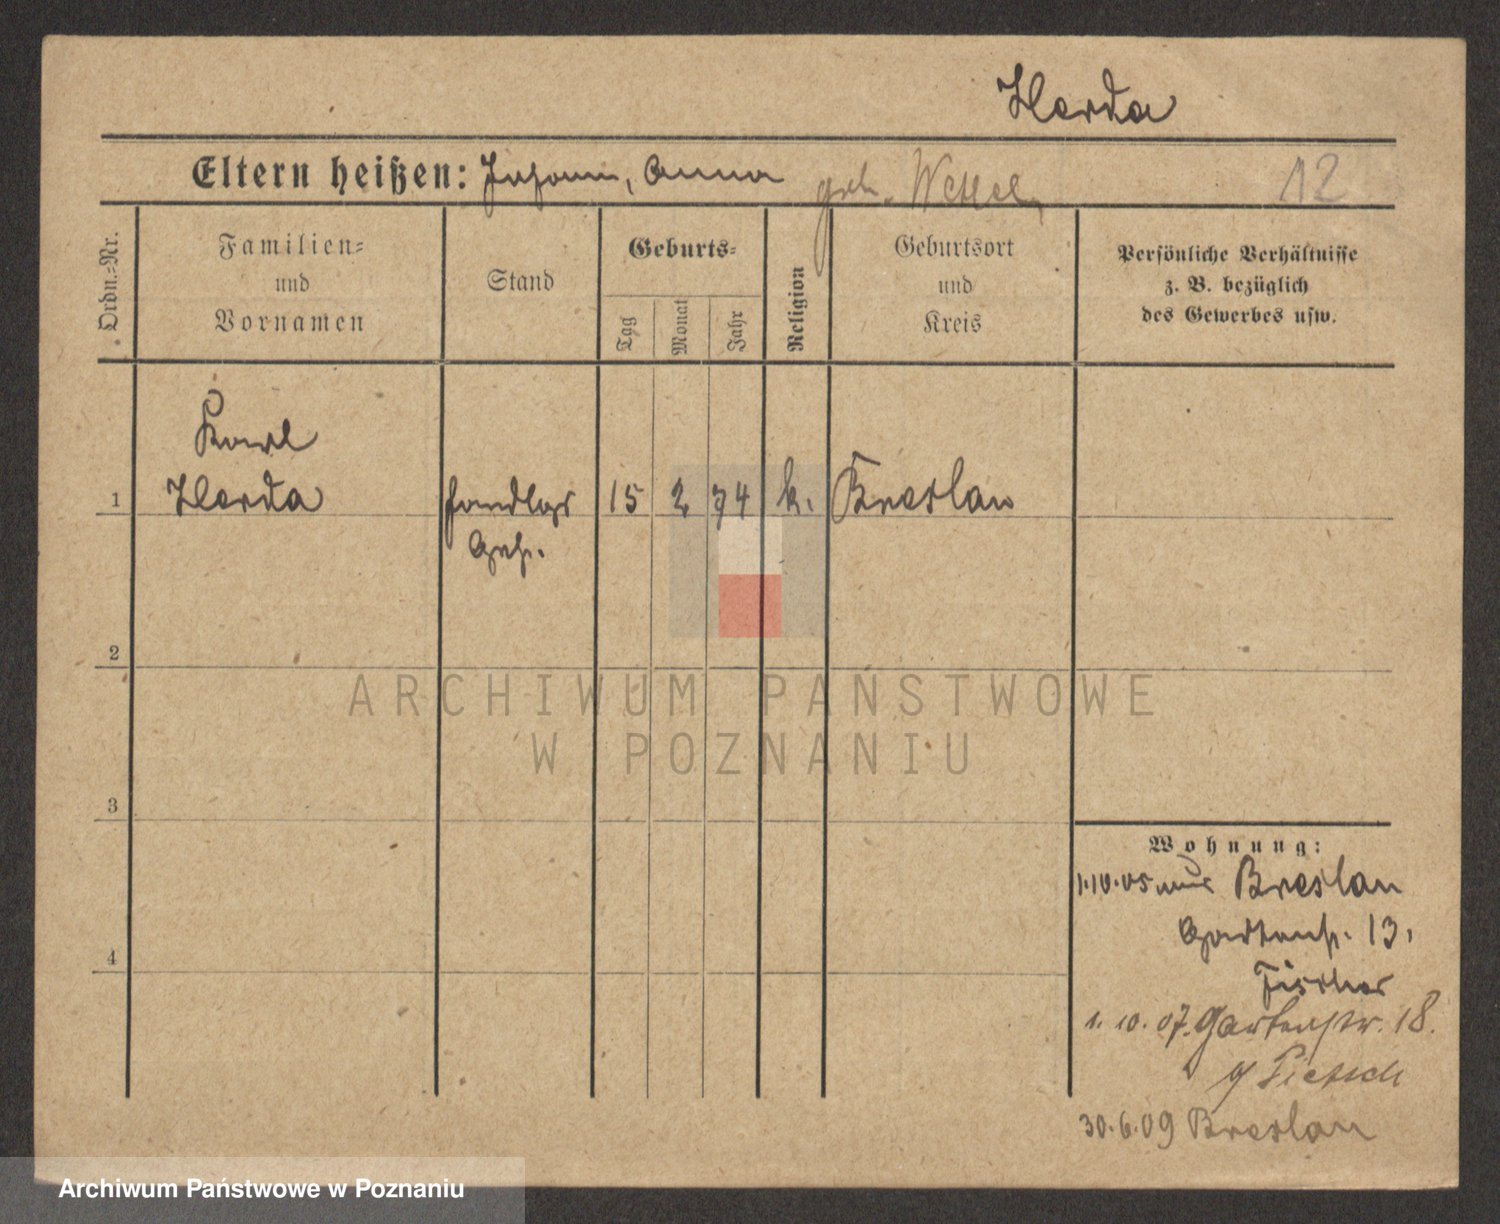 Herda
Eltern heißen: Johann, Anna geb. Wetzel 12
Ordn.-Nr.
Familien-
und
Vornamen
Stand
Geburts-
Tag
Monat
Jahr
Religion
Geburtsort
und
Kreis
Persönliche Verhältnisse
z. B. bezüglich
des Gewerbes usw.
Karl
1 Herda Handlgs 15 2 74 k. Breslau
Geh.
2
ARCHIWUM PAŃSTWOWE
W POZNANIU
3
Wohnung:
1.10.05 aus Breslau
Gartenstr. 13.
Fischer
4
1. 10. 07. Gartenstr. 18.
Pietsch
30.6.09 Breslau
Archiwum Państwowe w Poznaniu